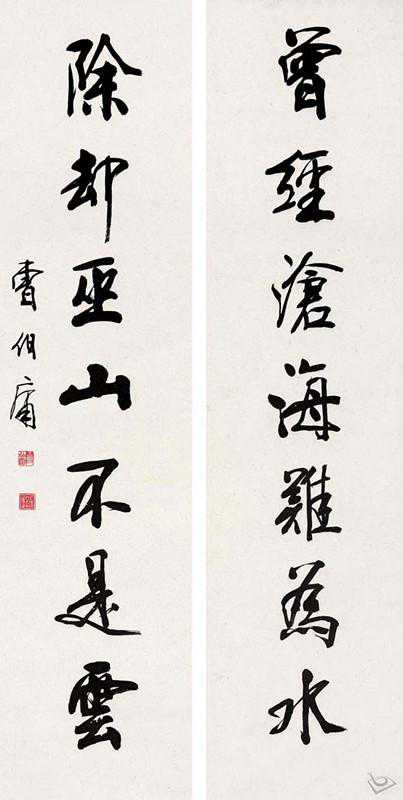 曾經滄海難為水
除却巫山不是雲
曹伯庸